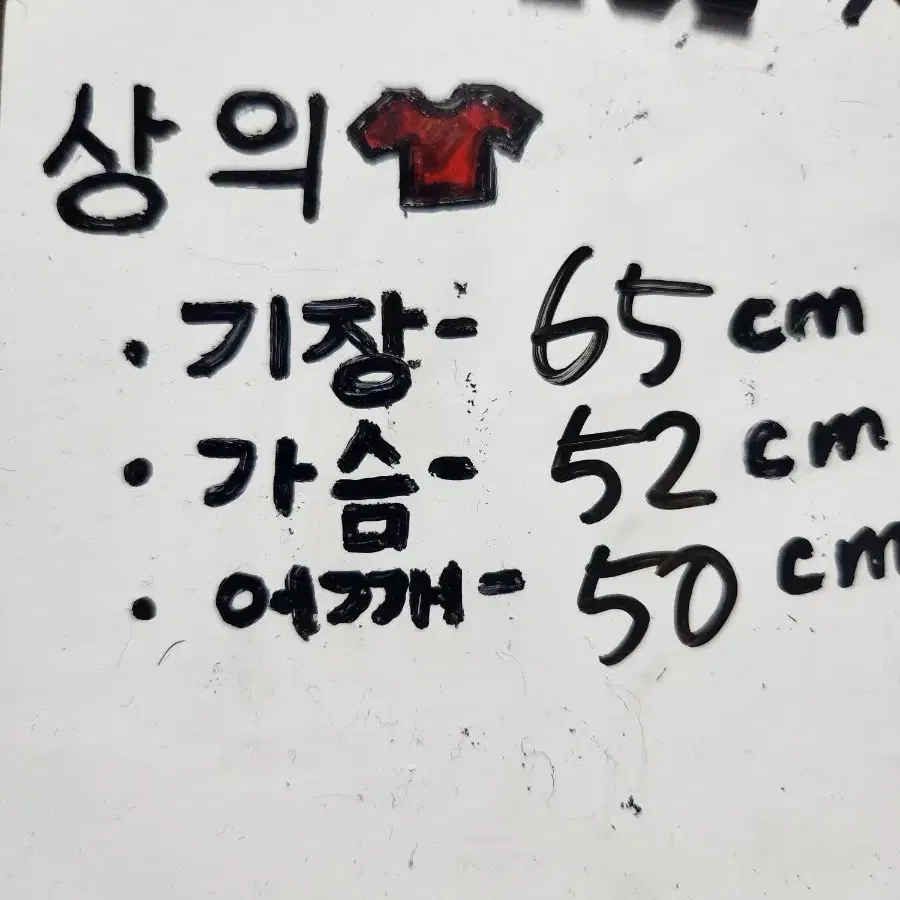 상의
· 기장- 65cm
· 가슴- 52cm
· 어깨- 50cm